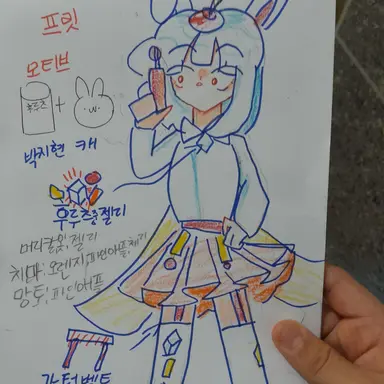 프릿
모티브
후루츠
박지현 캐
후루츠젤리
머리칼:젤리
치마:오렌지,파인애플,체리
망토:파인애플
가터벨트